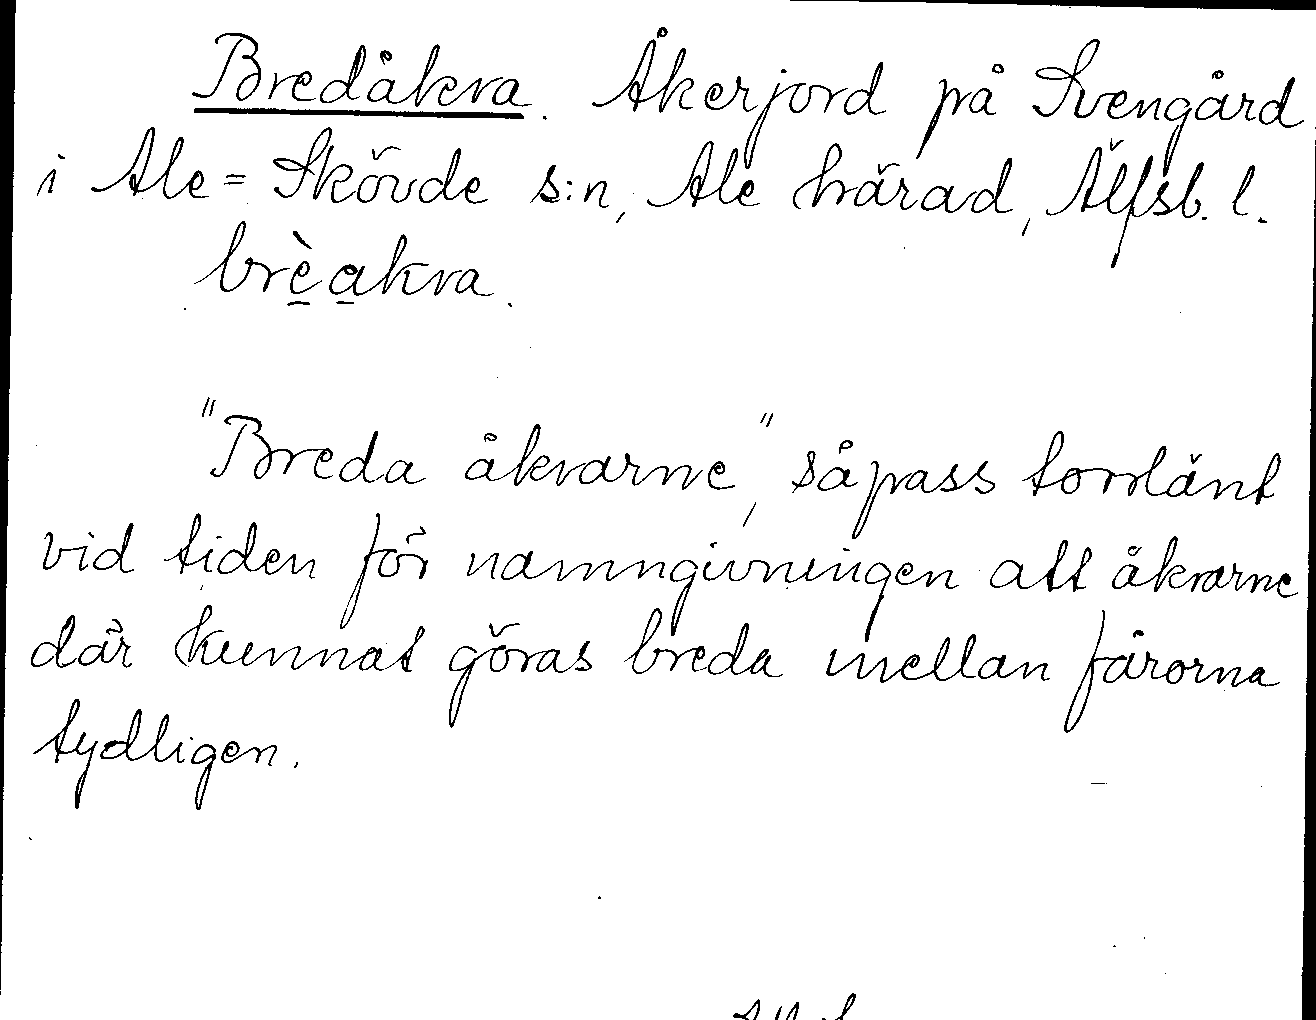 Bredåkra. Åkerjord på Svengård
i Ale=Skövde s:n, Ale härad, Älfsb. l.
brèakra.
"Breda åkrarne", såpass torrlänt
vid tiden för namngivningen att åkrarne
där kunnat göras breda mellan fårorna
tydligen.